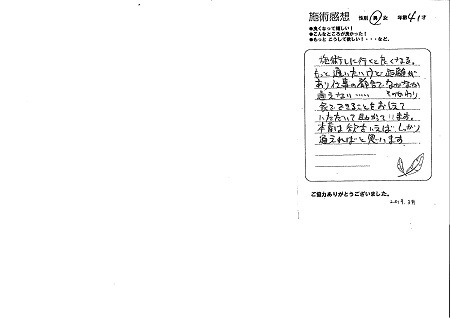 施術感想 性別 男 女 年齢 41才
●良くなって嬉しい！
●こんなところが良かった！
●もっと こうして欲しい！・・・など、
施術しに行くと良くなる。
もっと通いたいけど 距離が
あり仕事の都合でなかなか
通えない…… そのかわり
家でできることをお伝えて
いただいて助かています。
本当は 後 いえば しっかり
通えればと思います
ご協力ありがとうございました。
2019. 3月